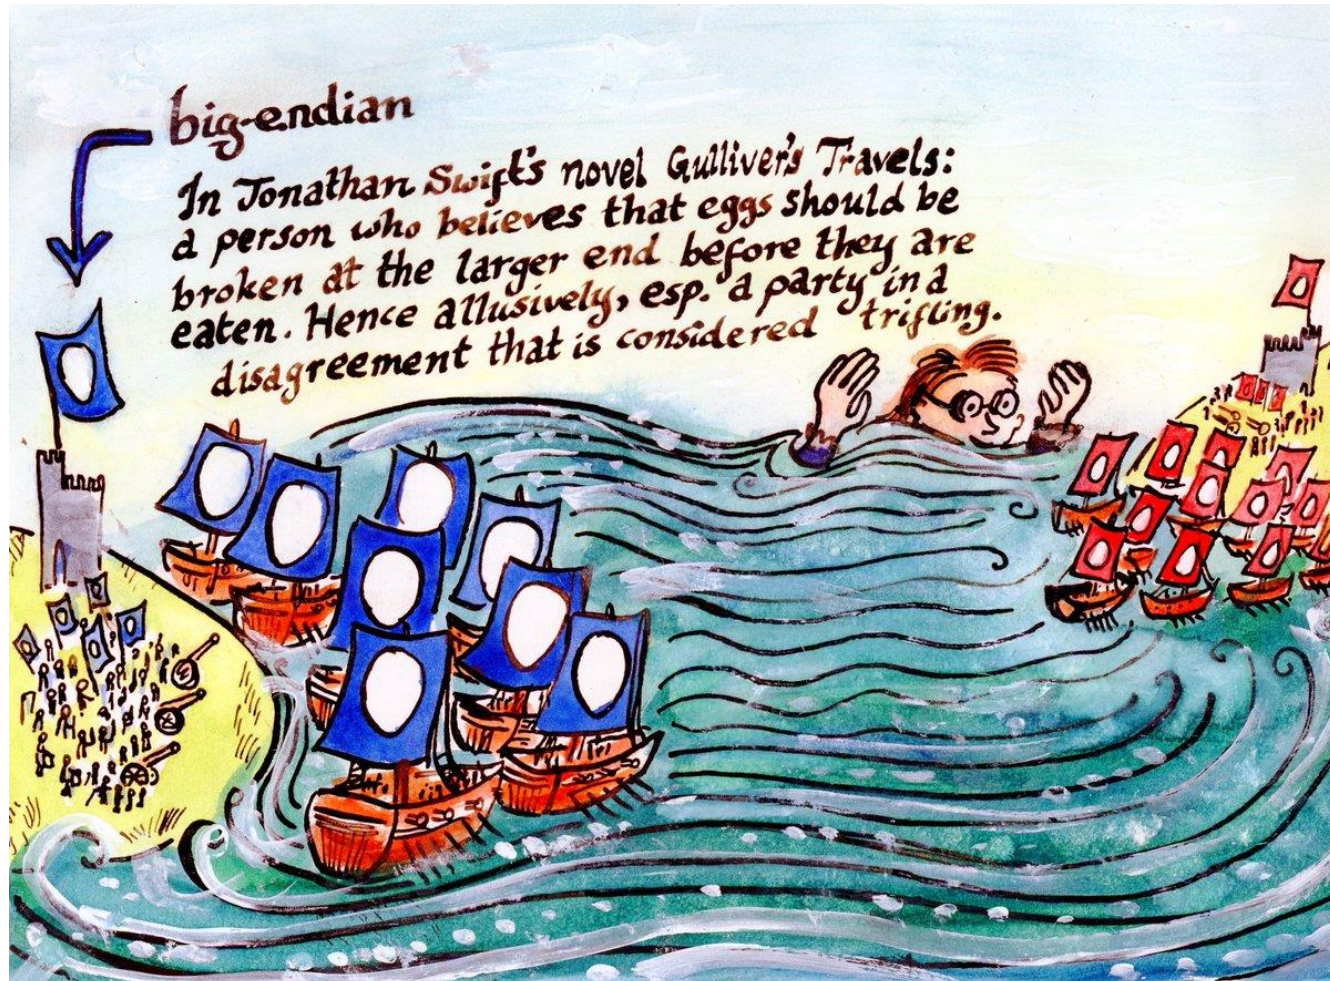 big-endian
In Jonathan Swift's novel Gulliver's Travels:
a person who believes that eggs should be
broken at the larger end before they are
eaten. Hence allusively, esp. a party in a
disagreement that is considered trifling.